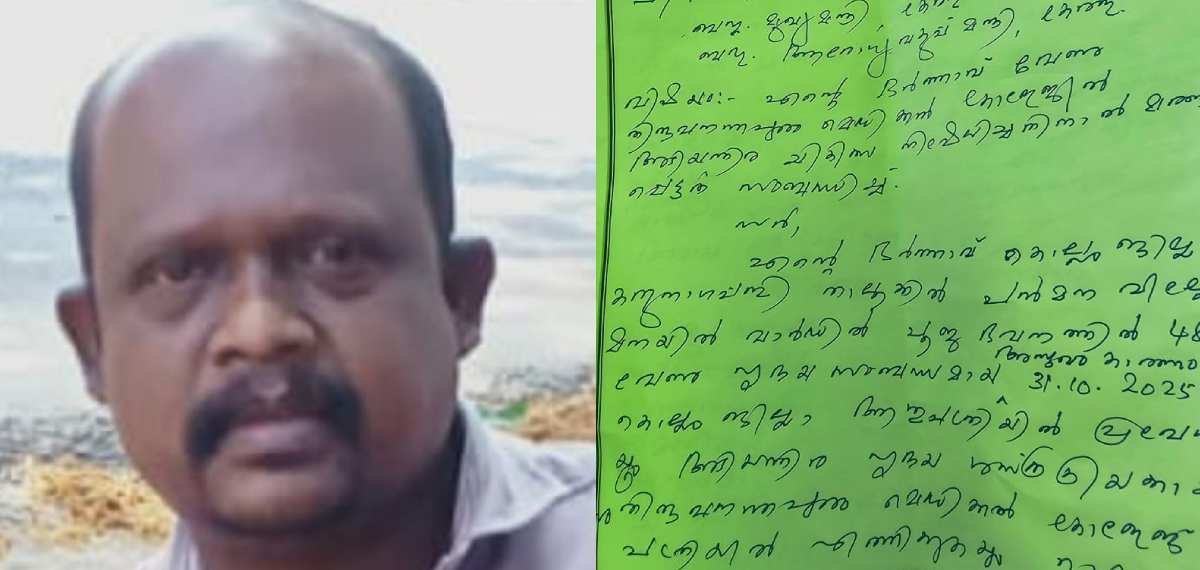 ബഹു. മുഖ്യമന്ത്രി, കേരള
ബഹു. ആരോഗ്യ വകുപ്പ് മന്ത്രി, കേരള.
വിഷയം:- എന്റെ ഭർത്താവ് വേണു
തിരുവനന്തപുരം മെഡിക്കൽ കോളേജിൽ
അടിയന്തിര ചികിത്സ നിഷേധിച്ചതിനാൽ
പ്പെട്ടത് സംബന്ധിച്ച്.
സർ,
എന്റെ ഭർത്താവ് കൊല്ലം ജില്ല
കരുനാഗപ്പള്ളി താലൂക്കിൽ പന്മന വില്ലേ
മനയിൽ വാർഡിൽ പൂജാ ഭവനത്തിൽ 48
വേണു ഹൃദയ സംബന്ധമായ അസുഖം കാരണം 31.10.2025
കൊല്ലം ജില്ലാ ആശുപത്രിയിൽ പ്രവേ
അടിയന്തിര ഹൃദയ ശസ്ത്രക്രിയക്കാ
തിരുവനന്തപുരം മെഡിക്കൽ കോളേജ്
പത്രിയിൽ എത്തിക്കുകയും